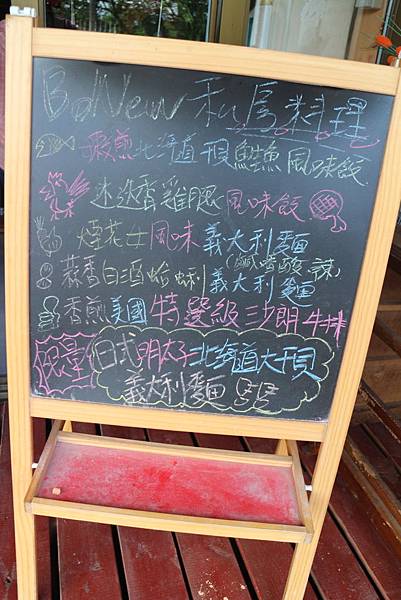 BoNew 私房料理
香煎北海道干貝鮭魚風味飯
迷迭香雞腿風味飯
煙花女風味義大利麵
(鹹香酸辣)
蒜香白酒蛤蜊義大利麵
香煎美國特選級沙朗牛排
限量
日式明太子北海道大干貝
義大利麵